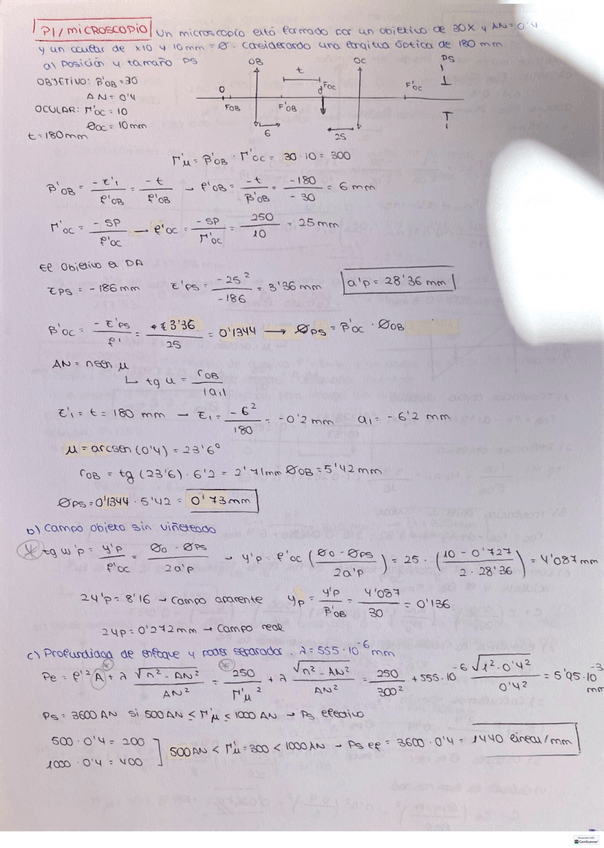 P1/MICROSCOPIO Un microscopio está formado por un objetivo de 30X y AN=0'4
y un ocular de x10 y 10 mm = Ø. Considerando una longitud óptica de 180 mm
a) Posición y tamaño PS
OBJETIVO: β'OB = 30
AN = 0'4
OCULAR: Γ'OC = 10
ØOC = 10mm
t = 180mm
OB OC PS
t
O FOB F'OB FOC F'OC
6 25
Γ'μ = β'OB · Γ'OC = 30 · 10 = 300
β'OB = -z'1/f'OB = -t/f'OB → f'OB = -t/β'OB = -180/-30 = 6 mm
Γ'OC = -SP/f'OC → f'OC = -SP/Γ'OC = 250/10 = 25 mm
El objetivo es DA
zPS = -186 mm z'PS = -25²/-186 = 3'36 mm a'p = 28'36 mm
β'OC = -z'PS/f' = 3'36/25 = 0'1344 → ØPS = β'OC · ØOB
AN = n sen μ
tg u = rOB/|a1|
z'1 = t = 180 mm → z1 = -6²/180 = -0'2 mm a1 = -6'2 mm
μ = arcsen (0'4) = 23'6°
rOB = tg (23'6) · 6'2 = 2'71mm ØOB = 5'42 mm
ØPS = 0'1344 · 5'42 = 0'73 mm
b) Campo objeto sin viñeteado
tg w'p = y'p/f'OC = ØO - ØPS/2a'p → y'p = f'OC (ØO - ØPS/2a'p) = 25 · (10 - 0'727/2 · 28'36) = 4'087 mm
2y'p = 8'16 → Campo aparente yp = y'p/β'OB = 4'087/30 = 0'136
2yp = 0'272 mm → Campo real
c) Profundidad de enfoque y poder separador. λ = 555·10⁻⁶ mm
Pe = f'² A + λ √n² - AN²/AN² = 250/Γ'μ² + λ √n² - AN²/AN² = 250/300² + 555·10⁻⁶ √1² · 0'4²/0'4² = 5'95·10⁻³ mm
Ps = 3600 AN si 500 AN ≤ Γ'μ ≤ 1000 AN → Ps efectivo
500 · 0'4 = 200
1000 · 0'4 = 400
500 AN < Γ'μ = 300 < 1000 AN → Ps ef = 3600 · 0'4 = 1440 líneas/mm
CamScanner